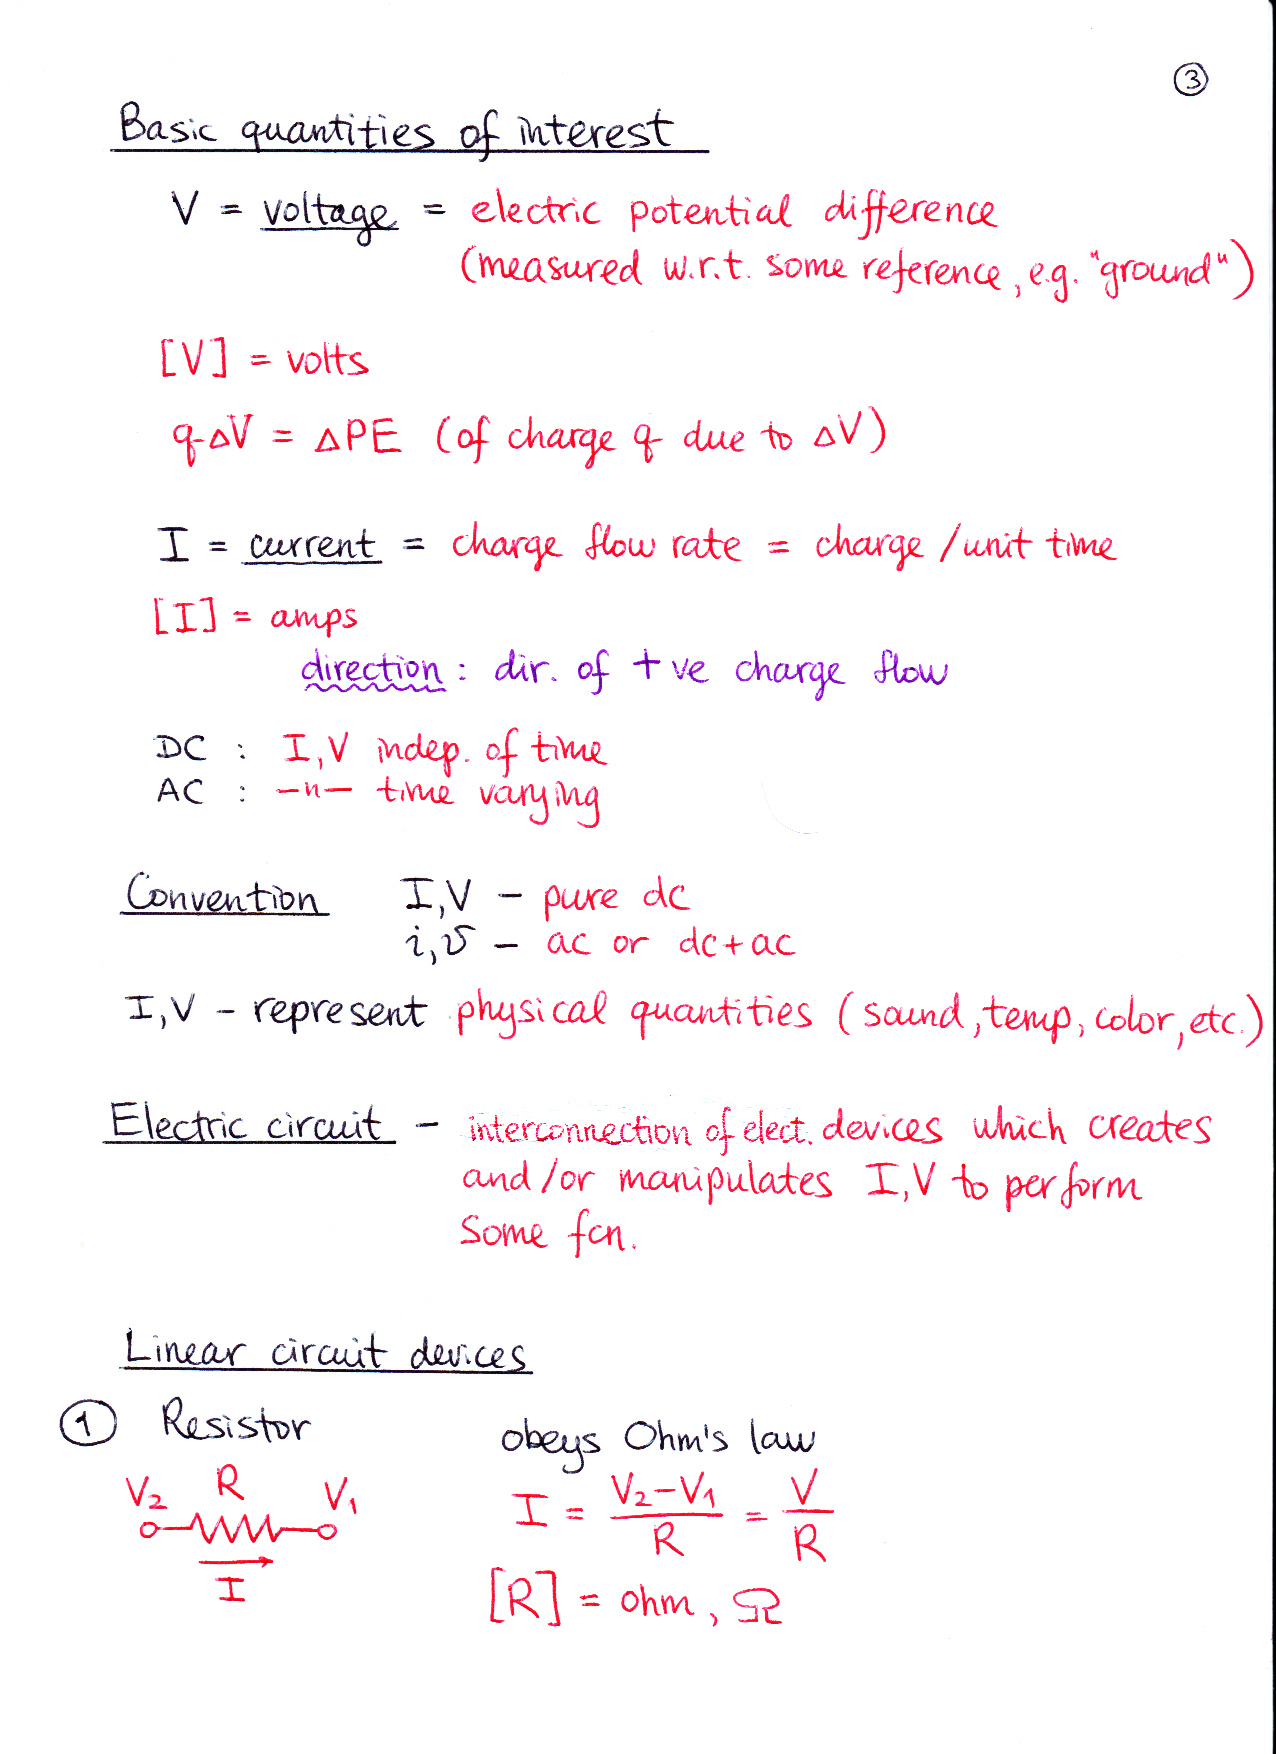 ③
Basic quantities of interest
V = voltage = electric potential difference
(measured w.r.t. some reference, e.g. "ground")
[V] = volts
q ΔV = ΔPE (of charge q due to ΔV)
I = current = charge flow rate = charge / unit time
[I] = amps
direction : dir. of +ve charge flow
DC : I, V indep. of time
AC : —〃— time varying
Convention I, V – pure dc
i, v – ac or dc + ac
I, V – represent physical quantities (sound, temp, color, etc.)
Electric circuit – interconnection of elect. devices which creates
and/or manipulates I, V to perform
some fcn.
Linear circuit devices
① Resistor obeys Ohm's law
V₂ R V₁ I = (V₂ – V₁)/R = V/R
I
[R] = ohm, Ω